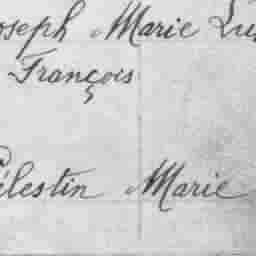 Joseph Marie Lu
François
Célestin Marie